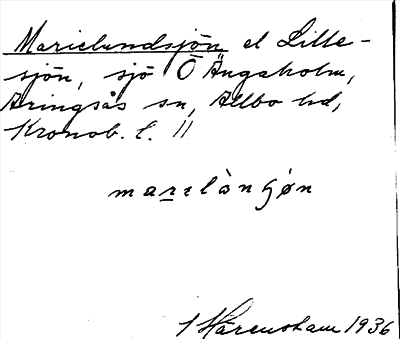 Marielundsjön el Lille-
sjön, sjö Ö Ängaholm,
Aringsås sn, Allbo hd,
Kronob. l. 11
marɪlàngøn
1936